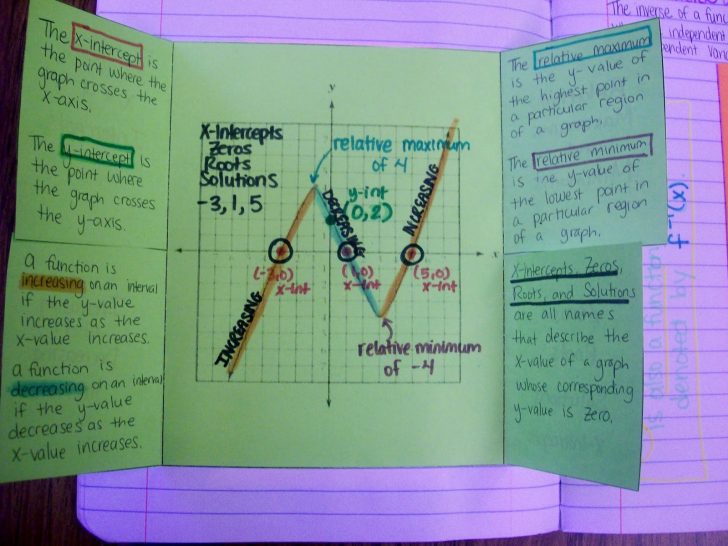 The x-intercept is
the point where the
graph crosses the
x-axis.
The y-intercept is
the point where
the graph crosses
the y-axis.
a function is
increasing on an interval
if the y-value
increases as the
x-value increases.
a function is
decreasing on an interval
if the y-value
decreases as the
x-value increases.
y
x
X-Intercepts
Zeros
Roots
Solutions
-3, 1, 5
relative maximum
of 4
y-int
(0,2)
INCREASING
DECREASING
INCREASING
(-3,0)
x-int
(1,0)
x-int
(5,0)
x-int
relative minimum
of -4
The relative maximum
is the y-value of
the highest point in
a particular region
of a graph.
The relative minimum
is the y-value of
the lowest point in
a particular region
of a graph.
X-Intercepts, Zeros,
Roots, and Solutions
are all names
that describe the
x-value of a graph
whose corresponding
y-value is zero.
The inverse of a func
independent
is also a function
denoted by f⁻¹(x).